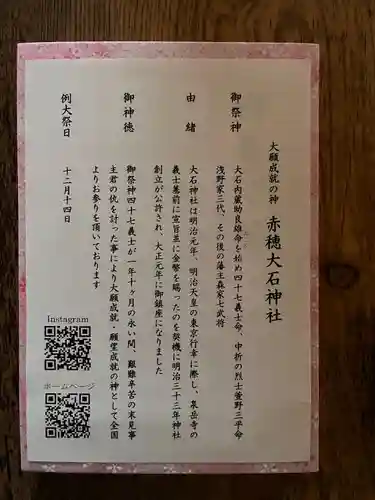 大願成就の神 赤穂大石神社
御祭神 大石内蔵助良雄命を始め四十七義士命、中折の烈士萱野三平命
浅野家三代、その後の藩主森家七武将
由緒 大石神社は明治元年、明治天皇の東京行幸に際し、泉岳寺の
義士墓前に宣旨並に金幣を賜ったのを契機に明治三十三年神社
創立が公許され、大正元年に御鎮座になりました
御神徳 御祭神四十七義士が一年十ヶ月の永い間、艱難辛苦の末見事
主君の仇を討った事により大願成就・願望成就の神として全国
よりお参りを頂いております
例大祭日 十二月十四日
Instagram
ホームページ